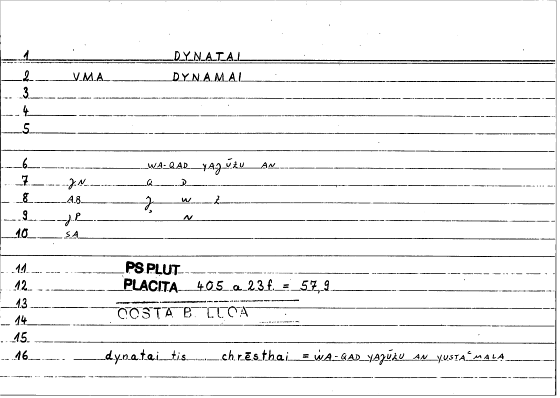 1 DYNATAI
2 VMA DYNAMAI
3
4
5
6 WA-QAD YAǦŪZU AN
7 ǦN Q D
8 AB Ǧ W Z
9 ǦP N
10 SA
11 PS PLUT
12 PLACITA 405 a 23f. = 57,9
13
14 COSTA B. LLOA
15
16 dynatai tis chrēsthai = WA-QAD YAǦŪZU AN YUSTAʿMALA